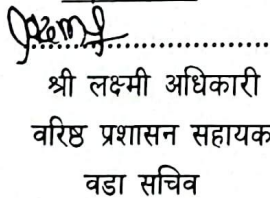 श्री लक्ष्मी अधिकारी
वरिष्ठ प्रशासन सहायक
वडा सचिव